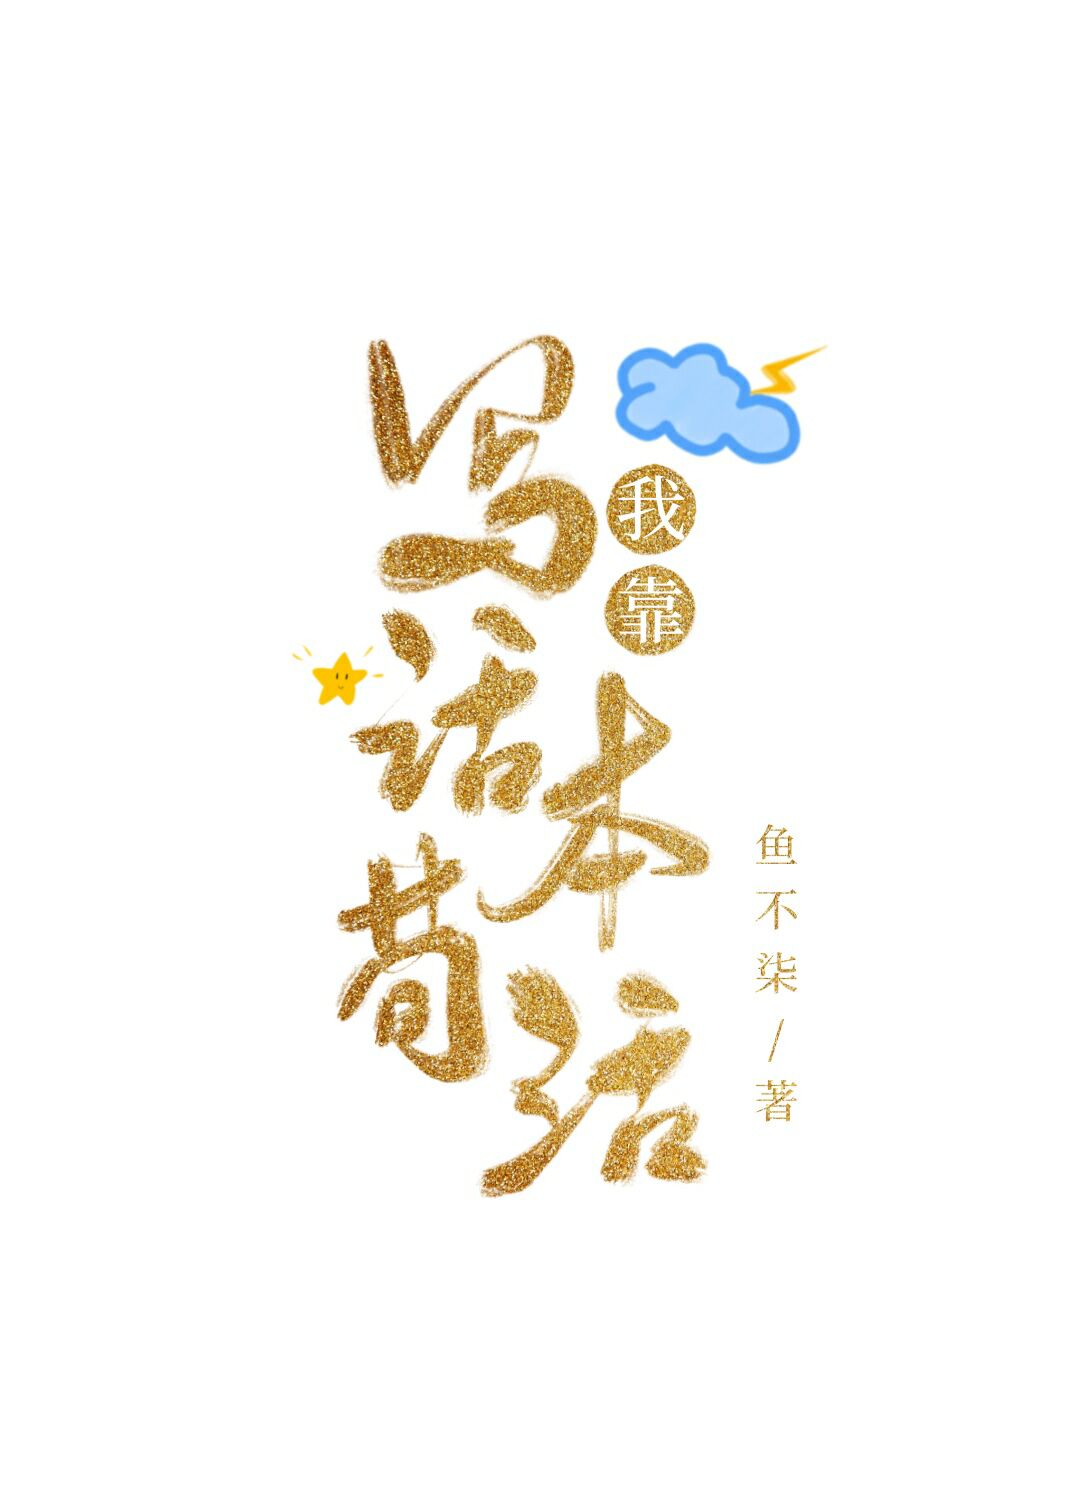 我靠
写话本
苟活
鱼不柒/著